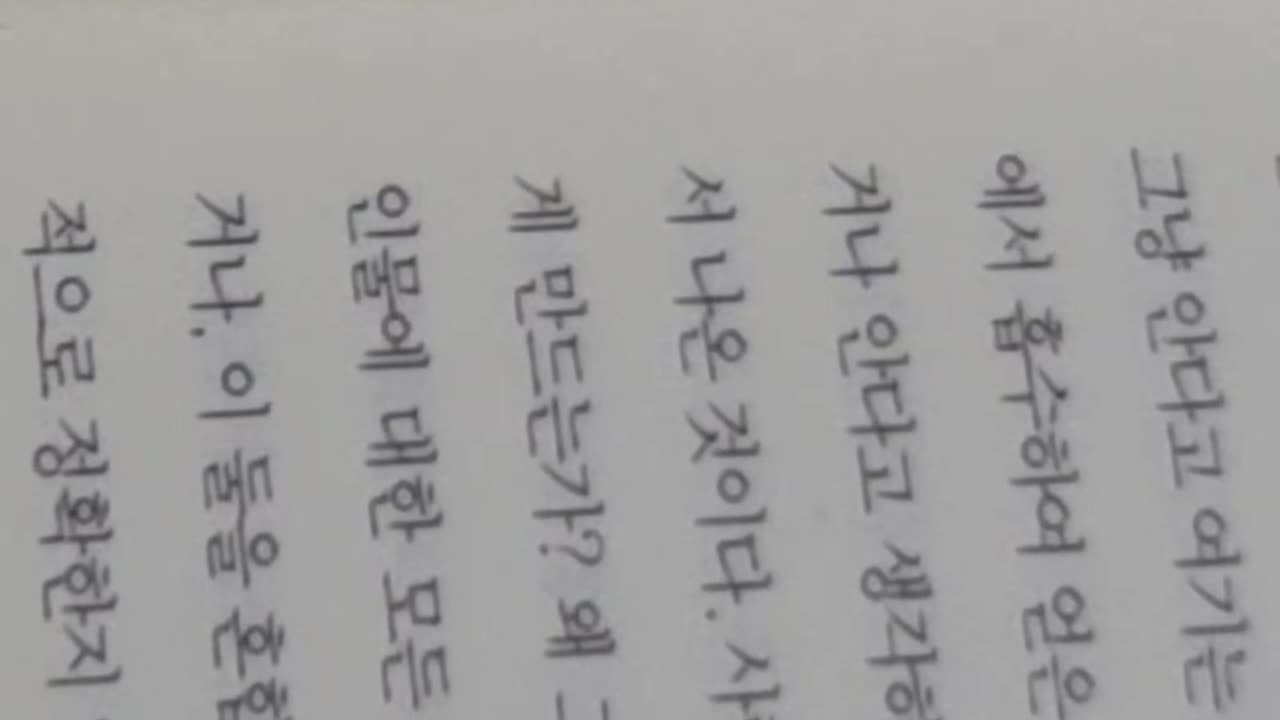 그냥 안다고 여기는
에서 흡수하여 얻은
거나 안다고 생각하
서 나온 것이다. 사
게 만드는가? 왜 그
인물에 대한 모든
거나. 이 둘을 혼합
적으로 정확한지